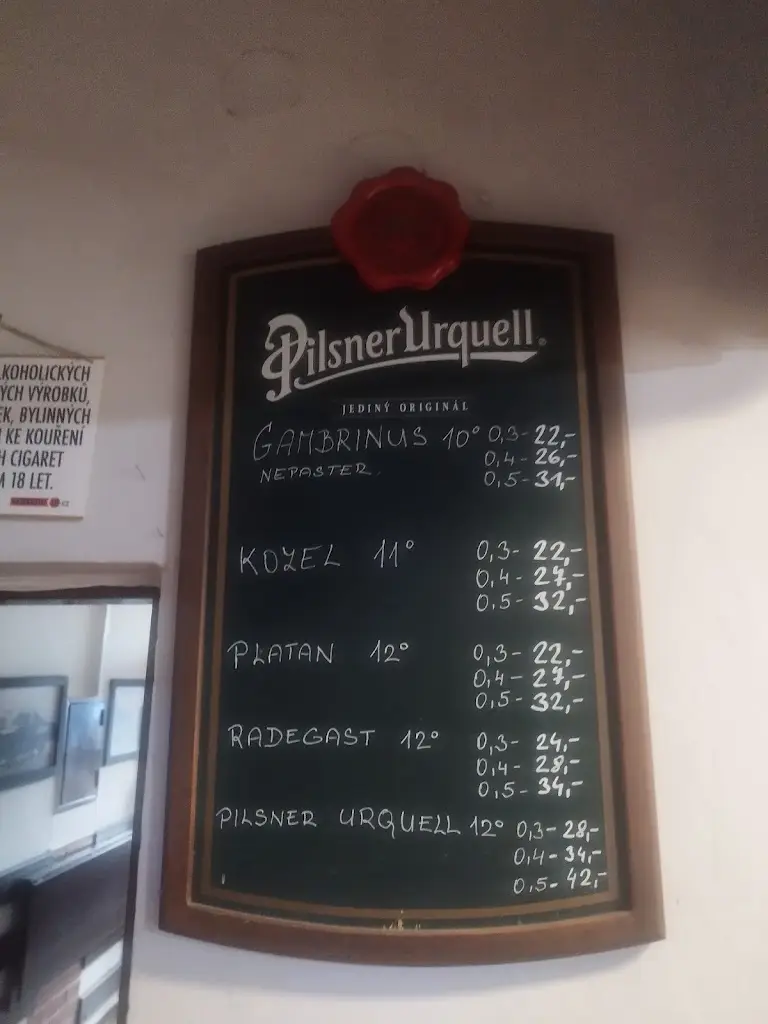 Pilsner Urquell
JEDINÝ ORIGINÁL
GAMBRINUS 10° 0,3- 22,-
NEPASTER. 0,4- 26,-
0,5- 31,-
KOZEL 11° 0,3- 22,-
0,4- 27,-
0,5- 32,-
PLATAN 12° 0,3- 22,-
0,4- 27,-
0,5- 32,-
RADEGAST 12° 0,3- 24,-
0,4- 28,-
0,5- 34,-
PILSNER URQUELL 12° 0,3- 28,-
0,4- 34,-
0,5- 42,-
LKOHOLICKÝCH
ÝCH VÝROBKŮ,
EK, BYLINNÝCH
KE KOUŘENÍ
H CIGARET
M 18 LET.